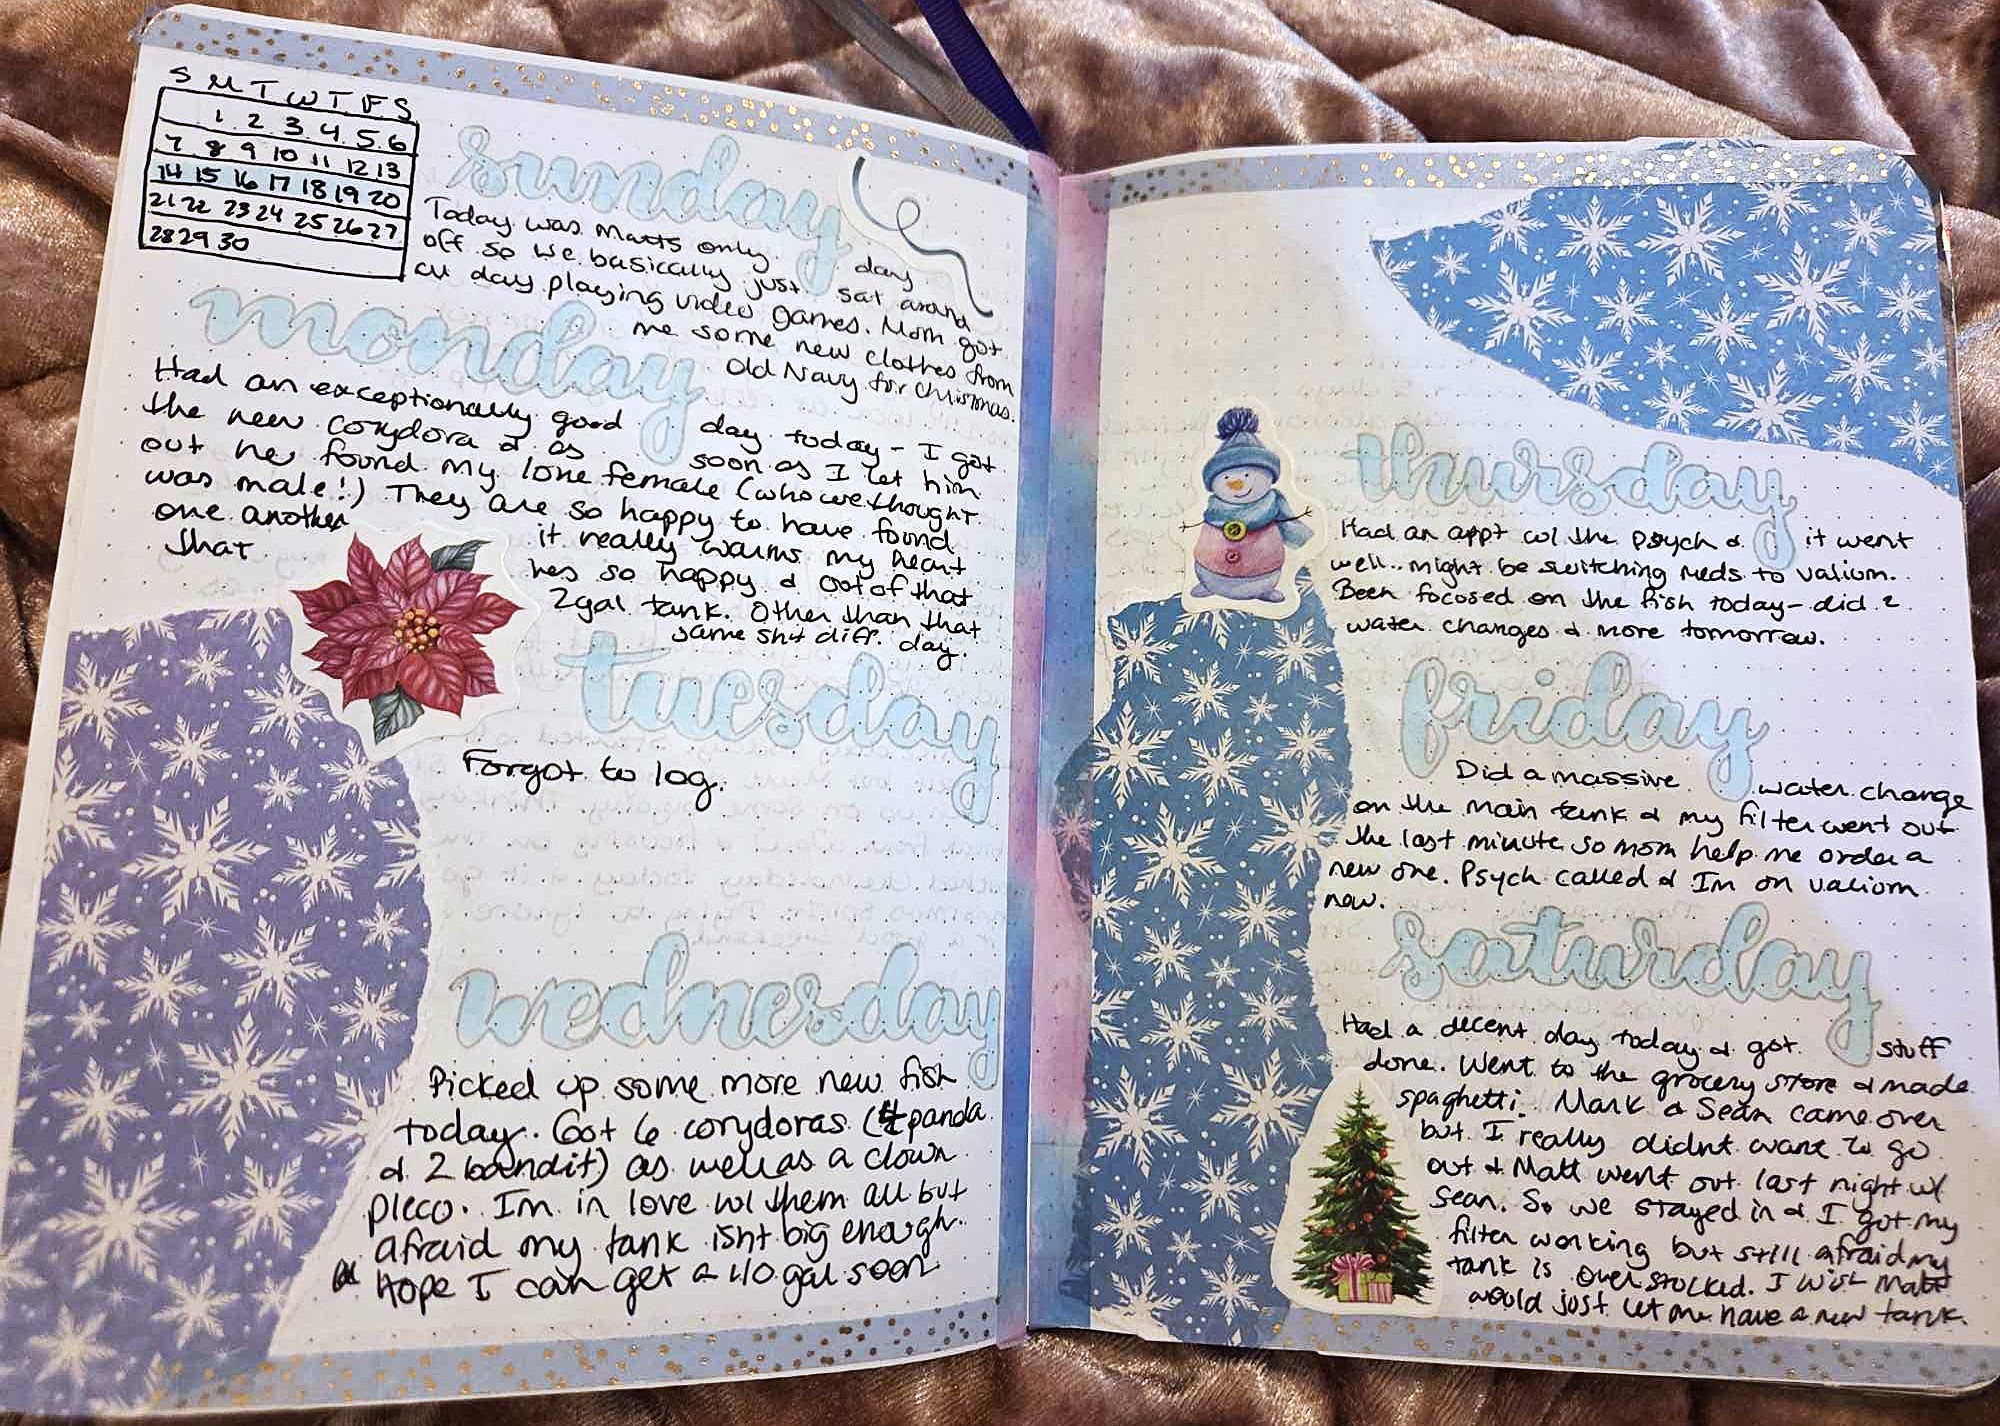 S M T W T F S
1 2 3 4 5 6
7 8 9 10 11 12 13
14 15 16 17 18 19 20
21 22 23 24 25 26 27
28 29 30
sunday
Today was Matts only day
off so we basically just sat around
all day playing video games. Mom got
me some new clothes from
Old Navy for Christmas.
monday
Had an exceptionally good day today - I got
the new corydora & as soon as I let him
out he found my lone female (who we thought
was male!) They are so happy to have found
one another it really warms my heart
that hes so happy & out of that
2gal tank. Other than that
same sh*t diff. day.
tuesday
Forgot to log.
wednesday
Picked up some more new fish
today. Got 6 corydoras (4 panda
& 2 bandit) as well as a clown
pleco. Im in love w/ them all but
afraid my tank isnt big enough.
Hope I can get a 40 gal soon
thursday
Had an appt w/ the psych & it went
well.. might be switching meds to valium.
Been focused on the fish today - did 2
water changes & more tomorrow.
friday
Did a massive water change
on the main tank & my filter went out
the last minute so mom help me order a
new one. Psych called & Im on valium
now.
saturday
Had a decent day today & got stuff
done. Went to the grocery store & made
spaghetti. Mark & Sean came over
but I really didnt want to go
out & Matt went out last night w/
Sean. So we stayed in & I got my
filter working but still afraid my
tank is overstocked. I wish Matt
would just let me have a new tank.